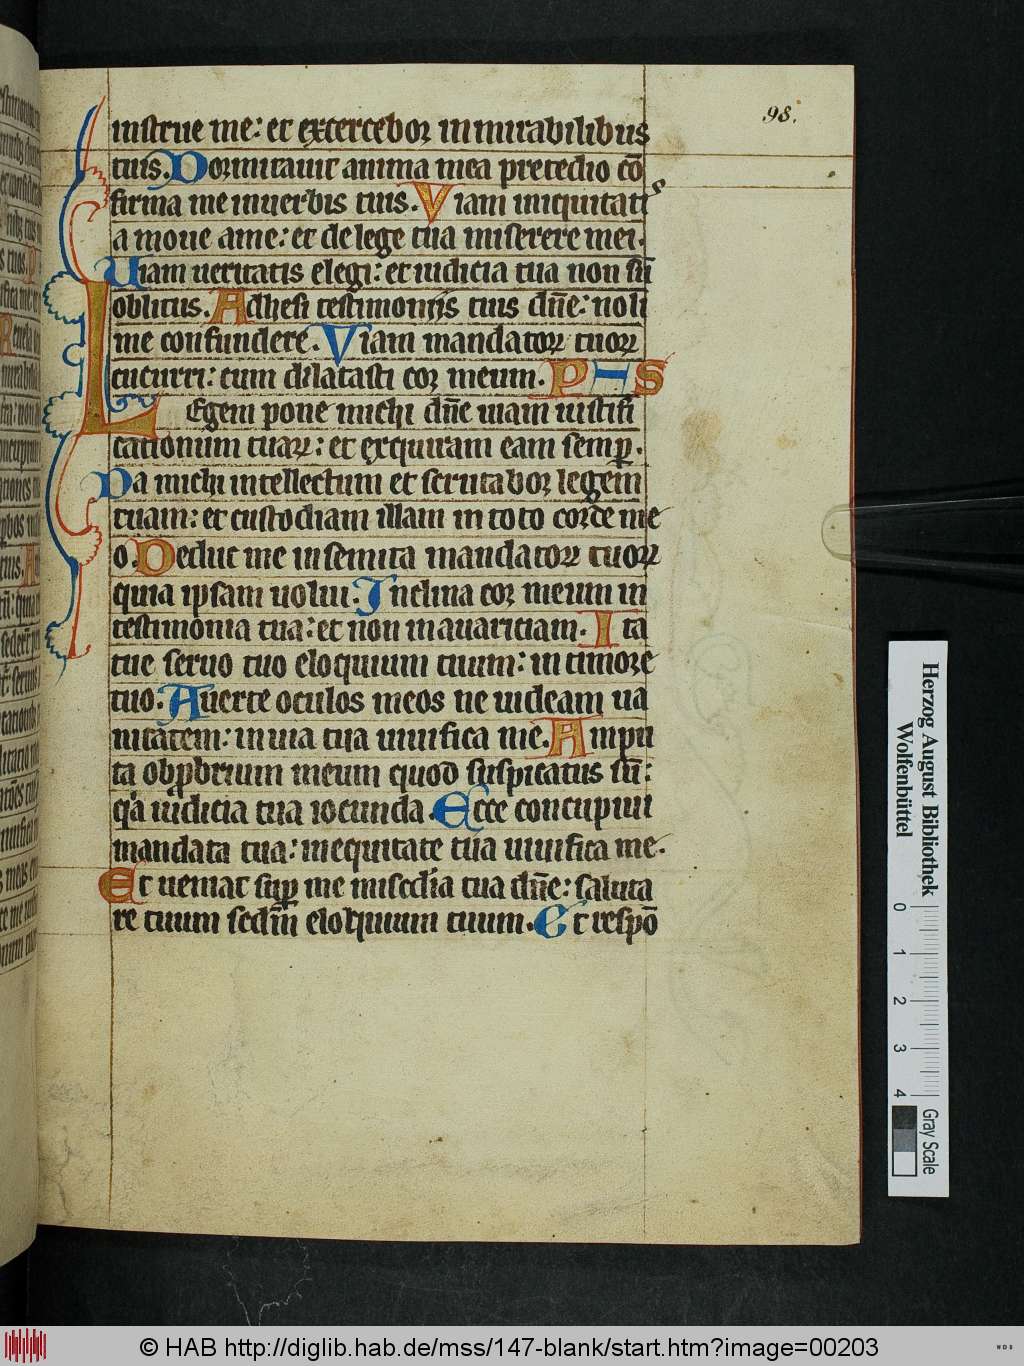 98.
instrue me: et exercebor in mirabilibus
tuis. Dormitauit anima mea pretedio cō
firma me in uerbis tuis. Viam iniquitatis
a moue a me: et de lege tua miserere mei.
Uiam ueritatis elegi: et iudicia tua non sū
oblitus. Adhesi testimonijs tuis dn̄e: noli
me confundere. Viam mandatoꝝ tuoꝝ
cucurri: cum dilatasti cor meum. PHS
Legem pone michi dn̄e uiam iustifi
cationum tuaꝝ: et exquiram eam semꝑ.
Da michi intellectum et scrutabor legem
tuam: et custodiam illam in toto corde me
o. Deduc me in semita mandatoꝝ tuoꝝ
quia ipsam uolui. Inclina cor meum in
testimonia tua: et non in auariciam. Sta
tue seruo tuo eloquium tuum: in timore
tuo. Auerte oculos meos ne uideam ua
nitatem: in uia tua uiuifica me. Ampu
ta obꝓbrium meum quod suspicatus sū:
q̄a iudicia tua iocunda. Ecce concupiui
mandata tua: in equitate tua uiuifica me.
Et ueniat suꝑ me mis̄cdia tua dn̄e: saluta
re tuum sed̄m eloquium tuum. Et respō
Herzog August Bibliothek
Wolfenbüttel
0 1 2 3 4
Gray Scale
© HAB http://diglib.hab.de/mss/147-blank/start.htm?image=00203